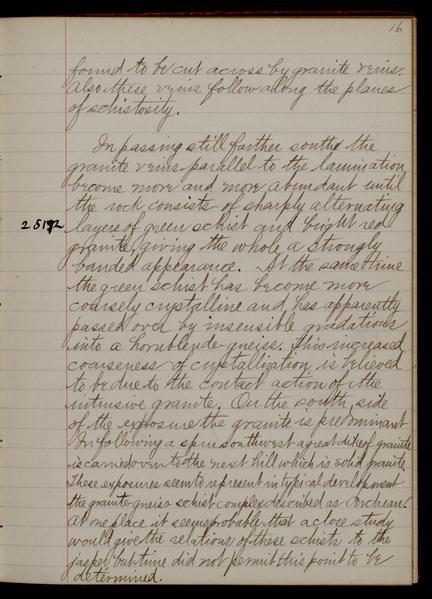 16
found to be cut across by granite veins.
Also these veins follow along the planes
of schistosity.
In passing still farther south the
granite veins parallel to the lamination
become more and more abundant until
the rock consists of sharply alternating
25192
layers of green schist and bright red
granite, giving the whole a strongly
banded appearance. At the same time
the green schist has become more
coarsely crystalline and has apparently
passed over by insensible gradations
into a hornblende-gneiss. This increased
coarseness of crystallization is believed
to be due to the contact action of the
intrusive granite. On the south side
of the exposure the granite is predominant
In following a spur southwest a great dike of granite
is carried over to the next hill which is solid granite.
These exposures seem to represent in typical development
the granite-gneiss schist complex described as Archean.
At one place it seems probable that a close study
would give the relations of these schists to the
jasper, but time did not permit this point to be
determined.